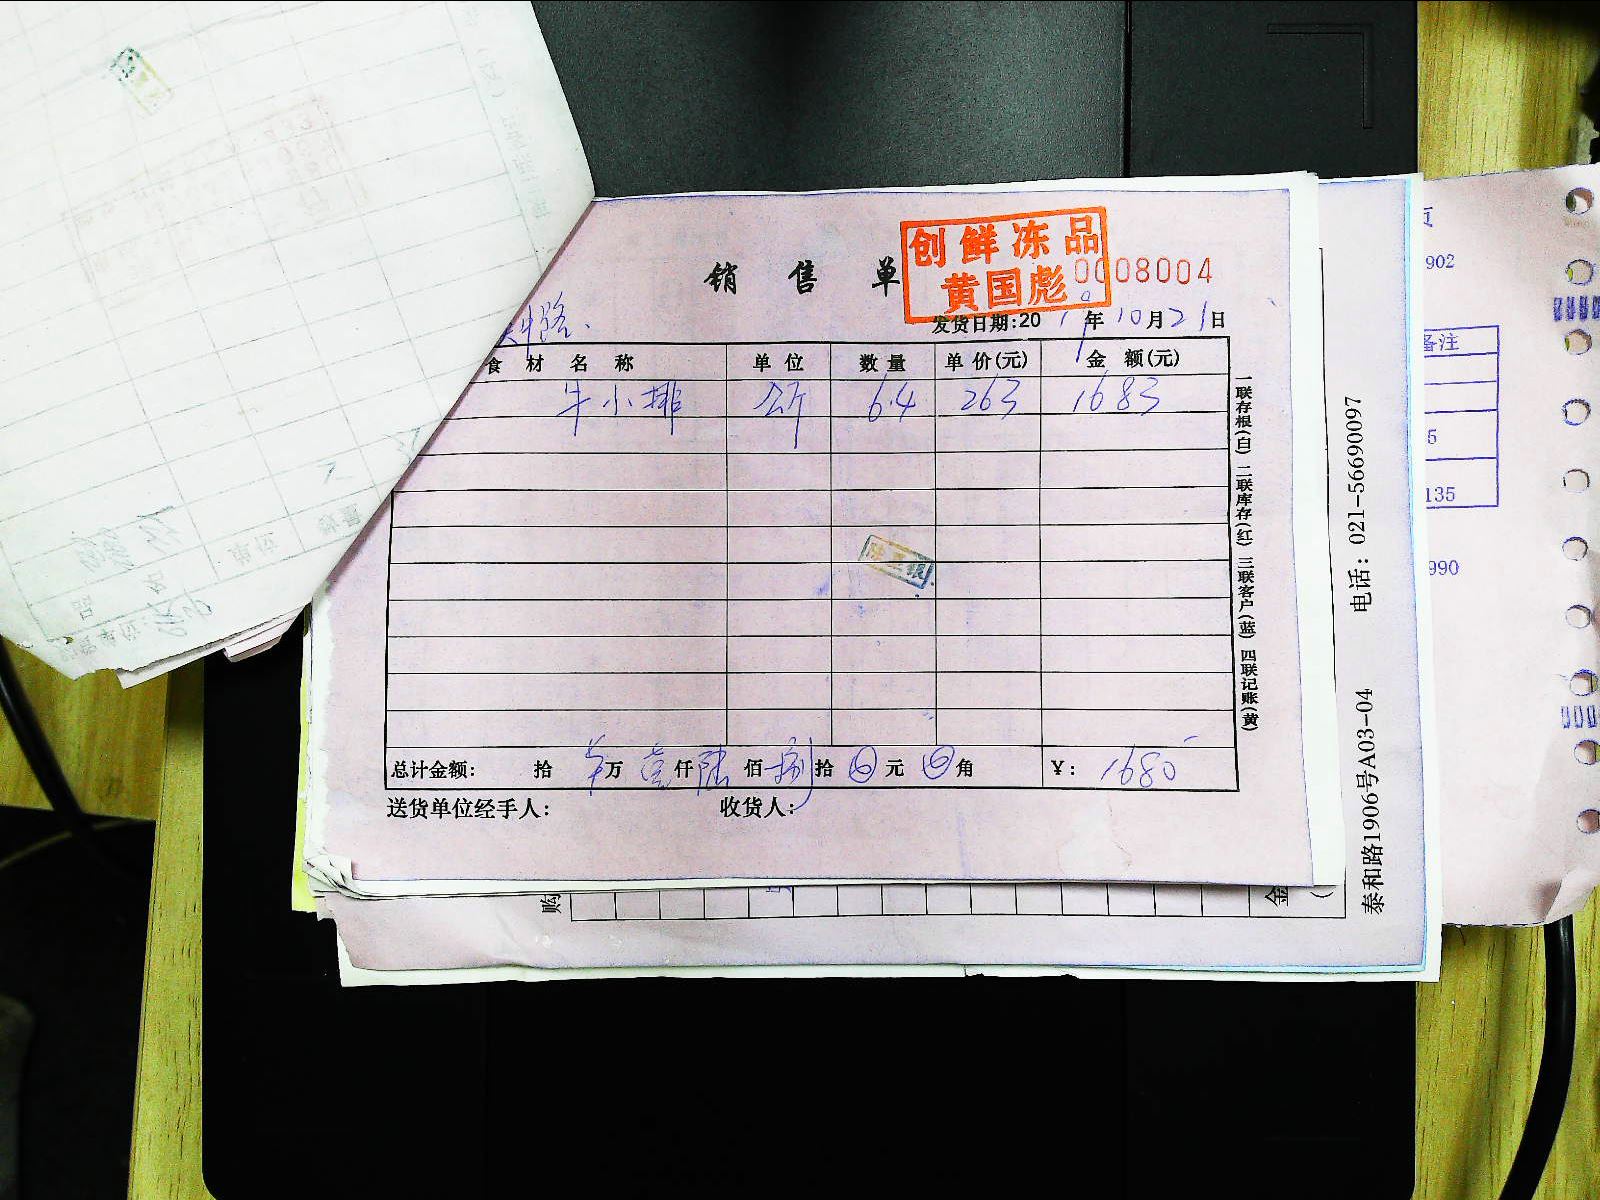 创鲜冻品
黄国彪
销售单
0008004
发货日期:2019年10月21日
食材名称 单位 数量 单价(元) 金额(元)
牛小排 公斤 6.4 263 1683
总计金额: 拾 万 壹仟 陆佰 捌拾 0元 0角 ¥: 1680
送货单位经手人: 收货人:
一联存根(白) 二联库存(红) 三联客户(蓝) 四联记账(黄)
泰和路1906号A03-04 电话: 021-56690097
购
金
902
备注
5
135
990